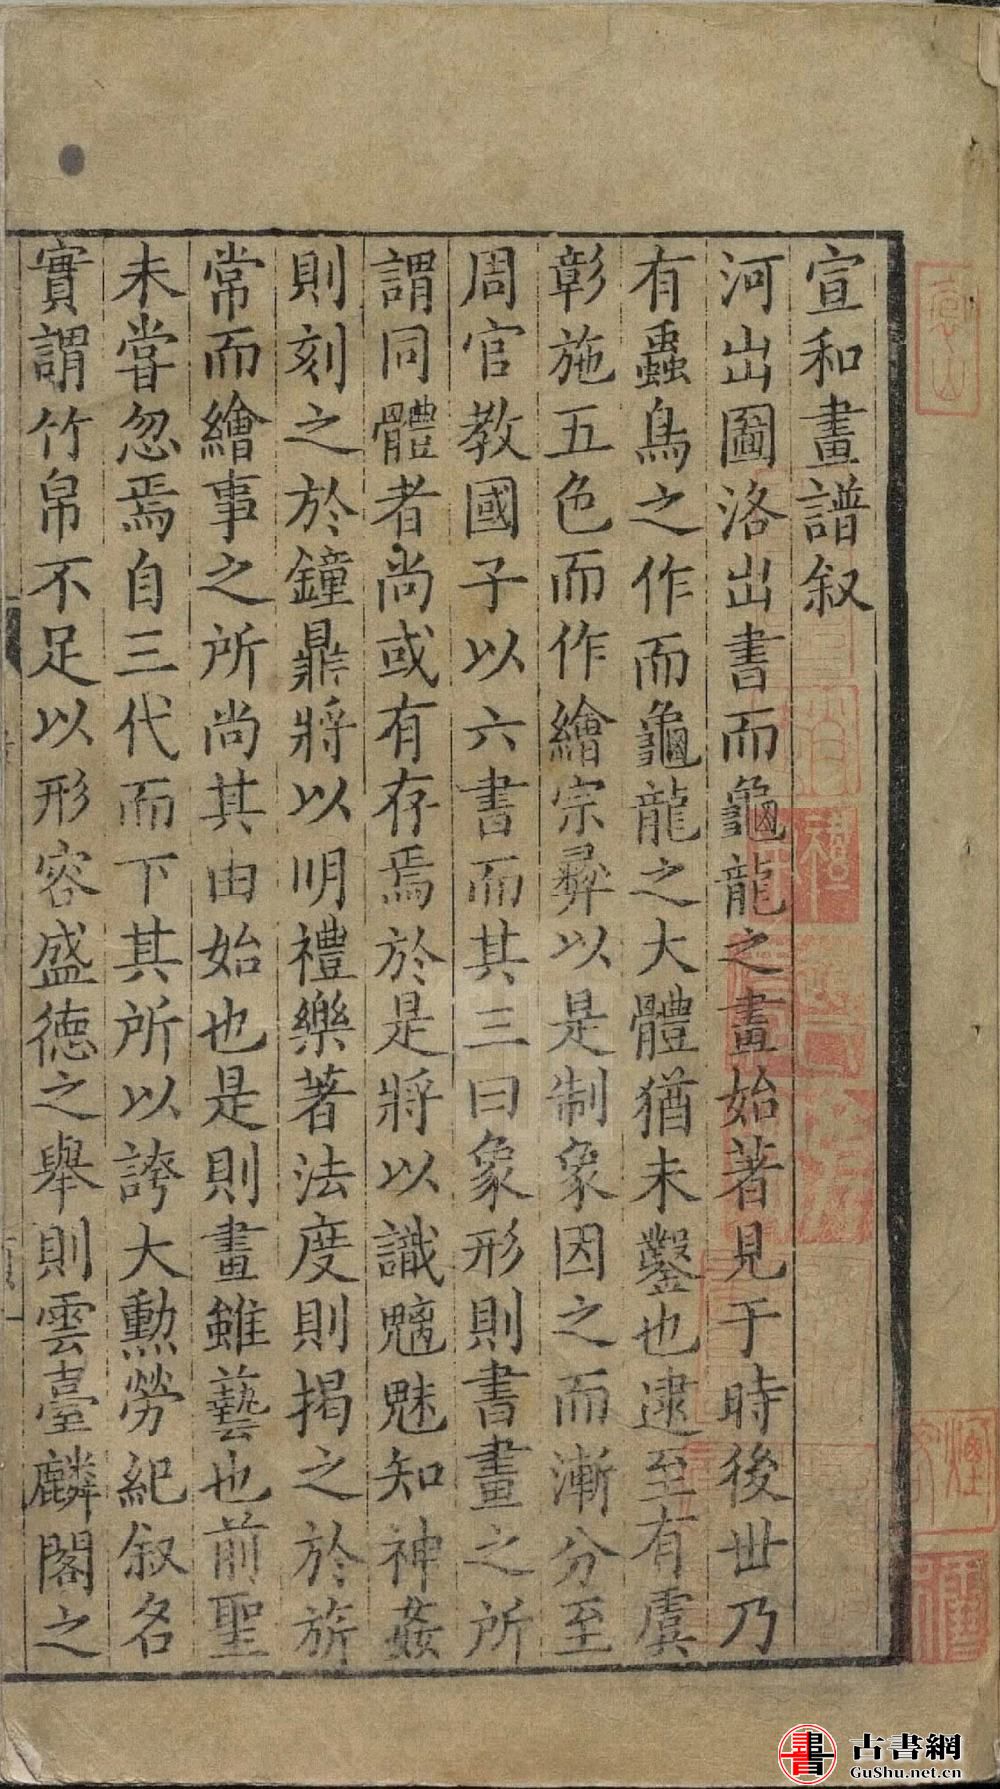 宣和畫譜叙
河出圖洛出書而龜龍之畫始著見于時後世乃
有蟲鳥之作而龜龍之大體猶未鑿也逮至有虞
彰施五色而作繪宗彛以是制象因之而漸分至
周官教國子以六書而其三曰象形則書畫之所
謂同體者尚或有存焉於是將以識魑魅知神姦
則刻之於鐘鼎將以明禮樂著法度則揭之於旂
常而繪事之所尚其由始也是則畫雖藝也前聖
未嘗忽焉自三代而下其所以誇大勳勞紀叙名
實謂竹帛不足以形容盛德之舉則雲臺麟閣之
書 古書網
GuShu.net.cn